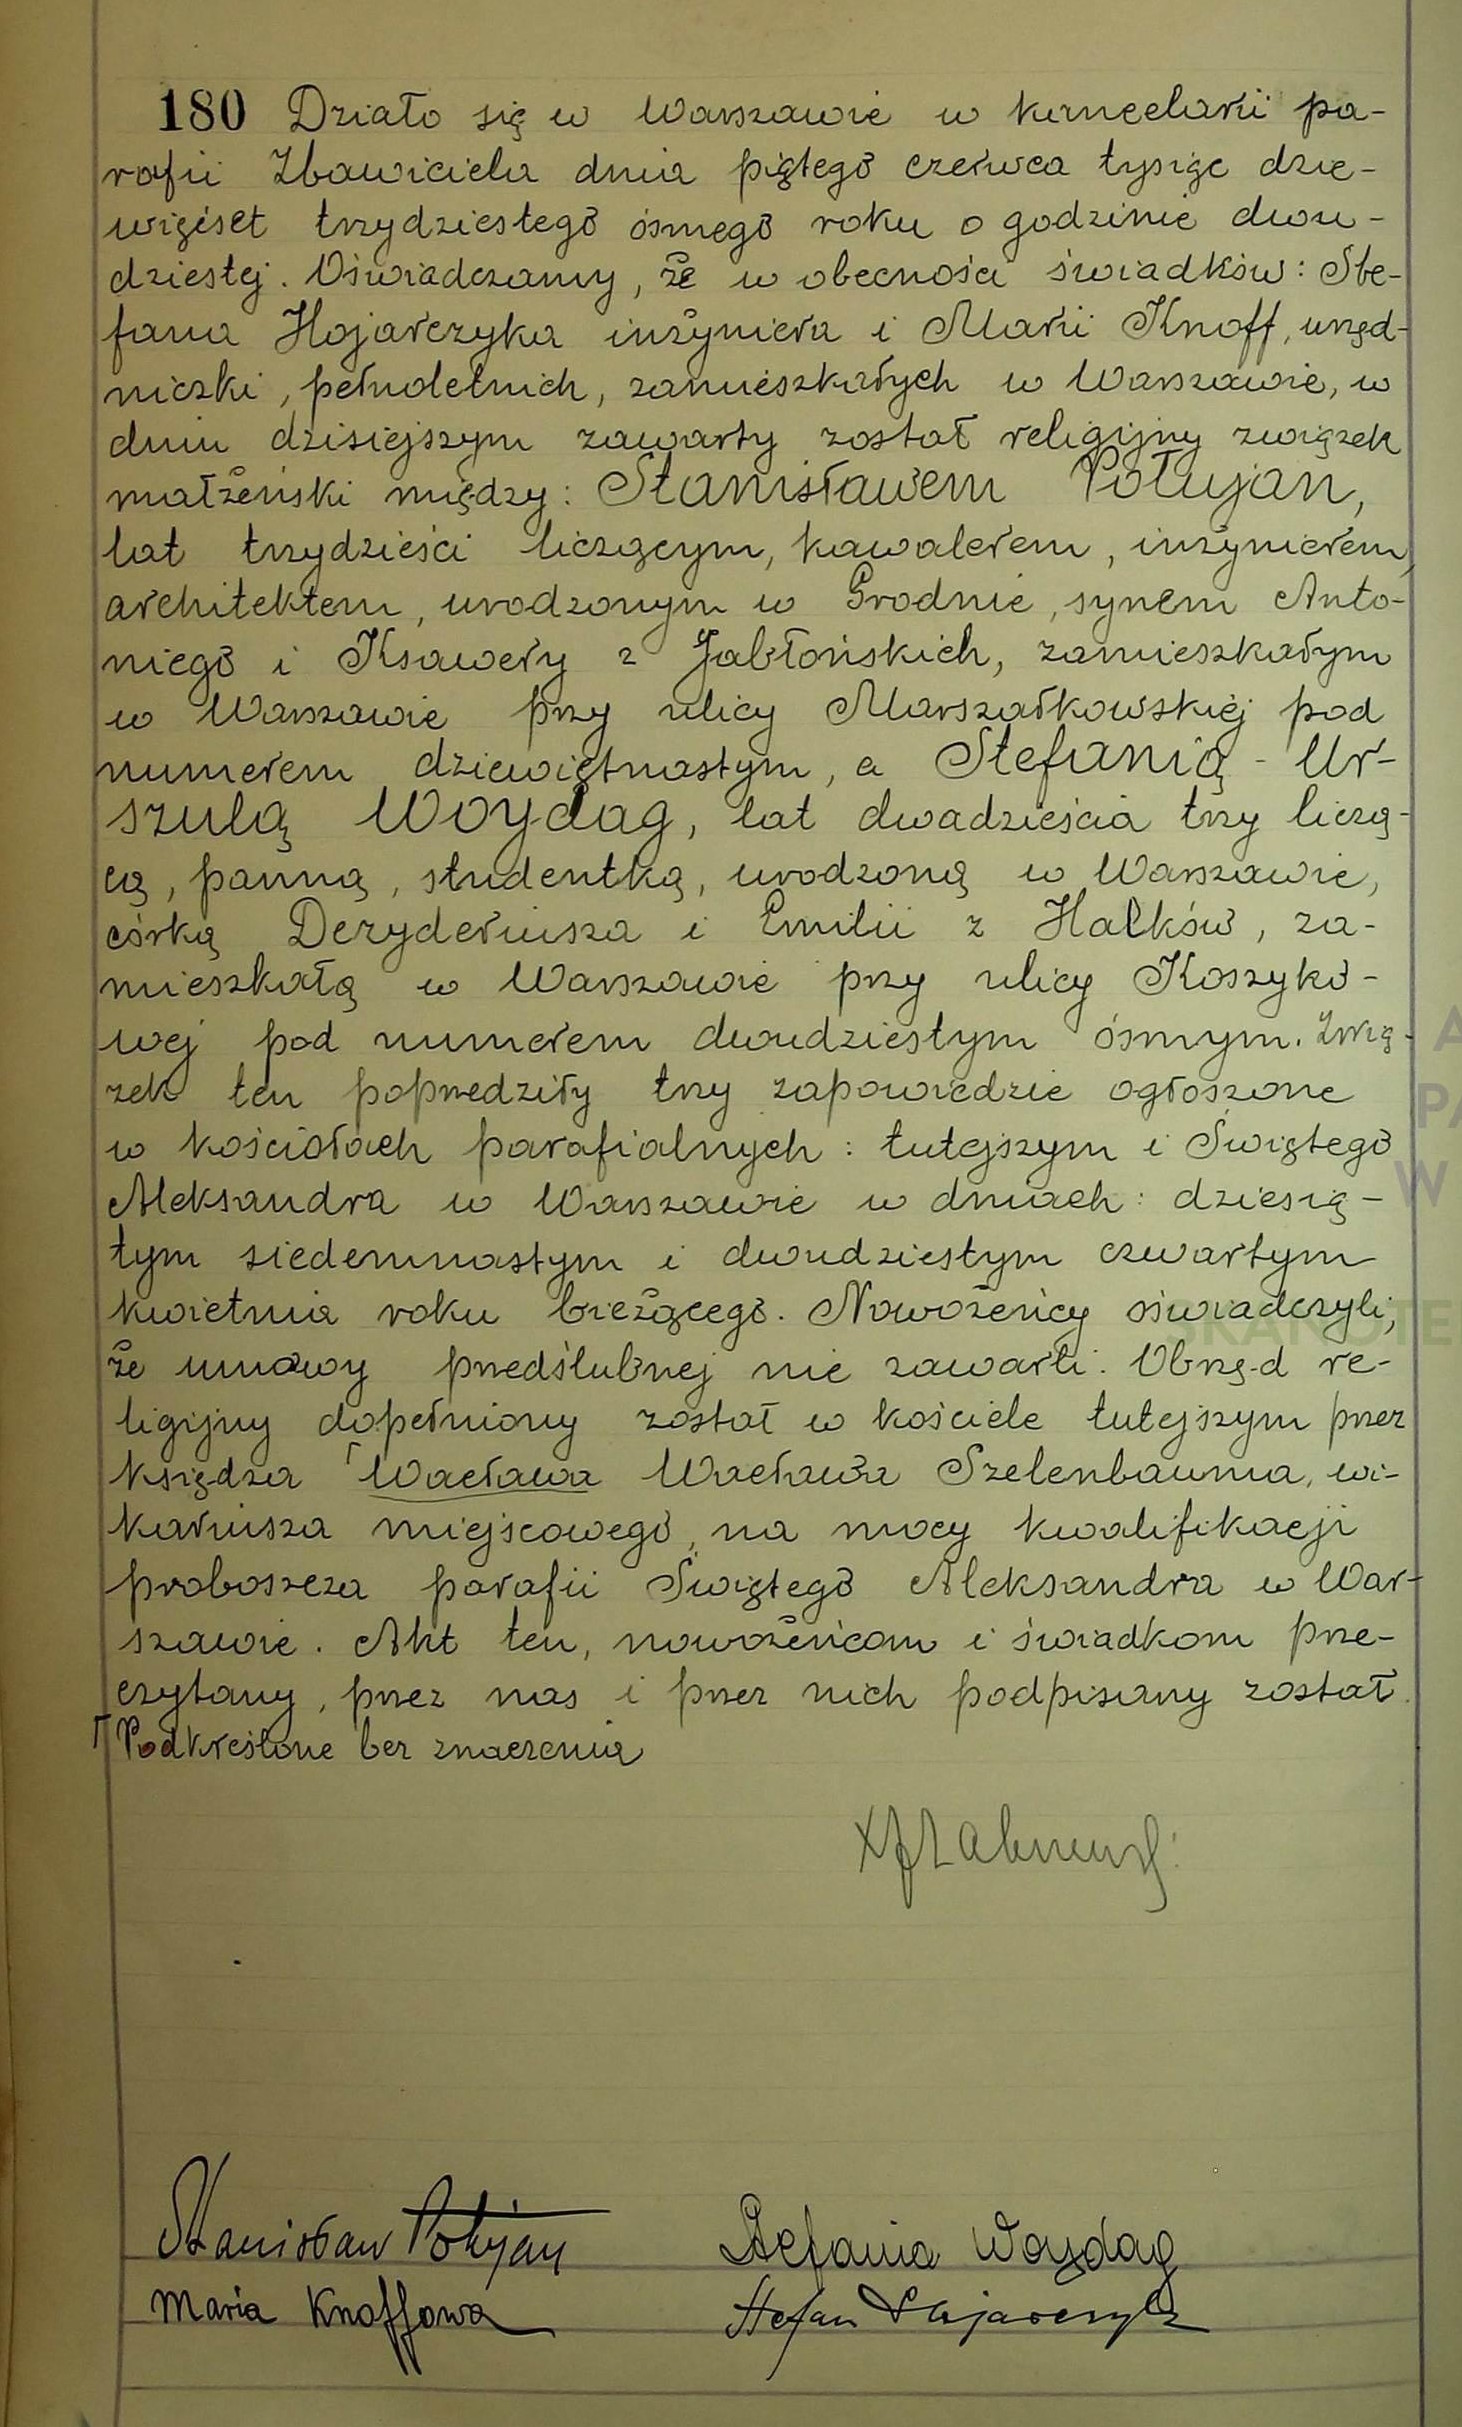 180 Działo się w Warszawie w kancelarii pa-
rafii Zbawiciela dnia piątego czerwca tysiąc dzie-
więćset trzydziestego ósmego roku o godzinie dwu-
dziestej. Oświadczamy, że w obecności świadków: Ste-
fana Hojarczyka inżyniera i Marii Knoff, urzęd-
niczki, pełnoletnich, zamieszkałych w Warszawie, w
dniu dzisiejszym zawarty został religijny związek
małżeński między: Stanisławem Połujan,
lat trzydzieści liczącym, kawalerem, inżynierem,
architektem, urodzonym w Grodnie, synem Anto-
niego i Ksawery z Jabłońskich, zamieszkałym
w Warszawie przy ulicy Marszałkowskiej pod
numerem dziewiętnastym, a Stefanią-Ur-
szulą Woydag, lat dwadzieścia trzy liczą-
cą, panną, studentką, urodzoną w Warszawie,
córką Dezyderiusza i Emilii z Halków, za-
mieszkałą w Warszawie przy ulicy Koszyko-
wej pod numerem dwudziestym ósmym. Zwią-
zek ten poprzedziły trzy zapowiedzie ogłoszone
w kościołach parafialnych: tutejszym i Świętego
Aleksandra w Warszawie w dniach: dziesią-
tym siedemnastym i dwudziestym czwartym
kwietnia roku bieżącego. Nowożeńcy oświadczyli,
że umowy przedślubnej nie zawarli. Obrzęd re-
ligijny dopełniony został w kościele tutejszym przez
księdza Wacława Wacława Szelenbauma, wi-
kariusza miejscowego, na mocy kwalifikacji
proboszcza parafii Świętego Aleksandra w War-
szawie. Akt ten, nowożeńcom i świadkom prze-
czytany, przez nas i przez nich podpisany został.
Podkreślone bez znaczenia
Stanisław Połujan Stefania Woydag
Maria Knoffowa Stefan Hojarczyk